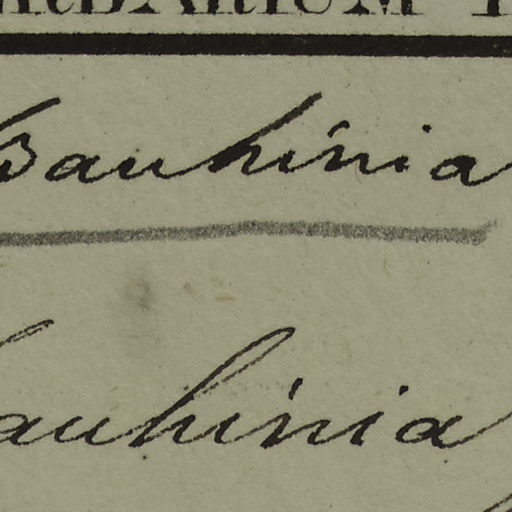 HERBARIUM
Bauhinia
Bauhinia